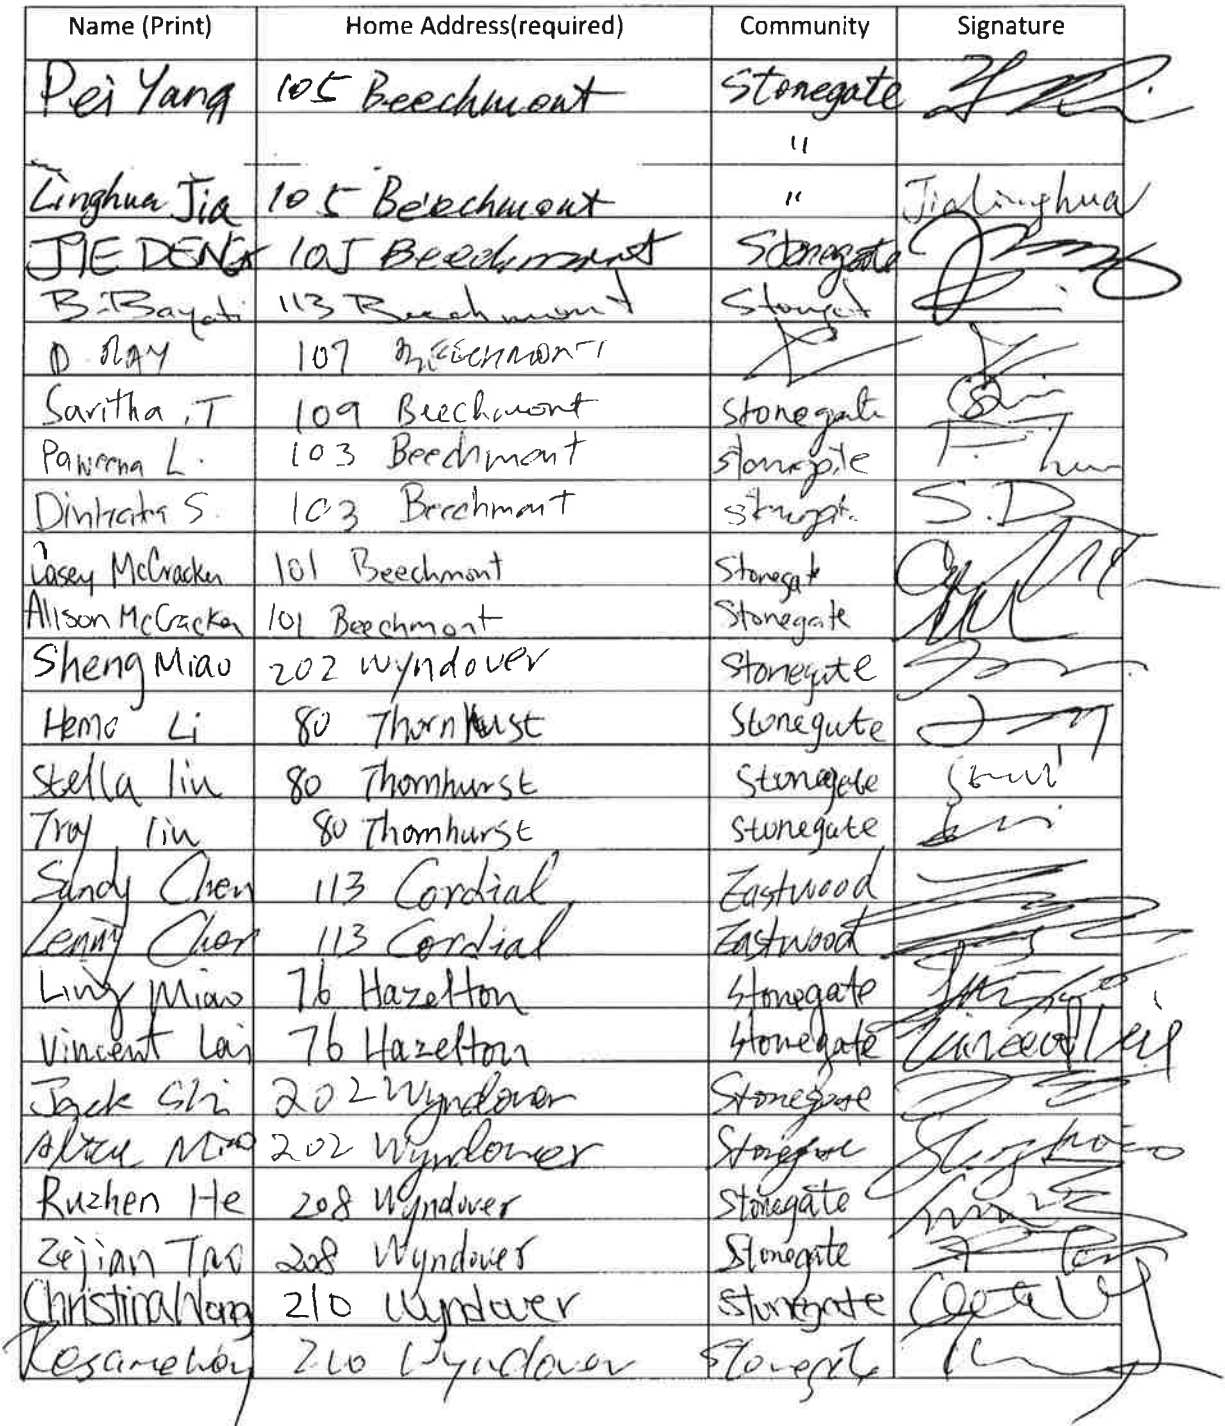 Name (Print) Home Address(required) Community Signature
Pei Yang 105 Beechmont Stonegate
"
Linghua Jia 105 Beechmont " Jialinghua
JIE DENG 105 Beechmont Stonegate
B. Bayati 113 Beechmont
D RAY 107 BEECHMONT
Saritha .T 109 Beechmont Stonegate
Paweena L. 103 Beechmont
S. 103 Beechmont S.D
Casey McCracken 101 Beechmont Stonegate
Alison McCracken 101 Beechmont Stonegate
Sheng Miao 202 Wyndover Stonegate
Li 80 Thornhurst Stonegate
Stella liu 80 Thornhurst Stonegate
Troy liu 80 Thornhurst Stonegate
Sandy Chen 113 Cordial Eastwood
Lenny Chen 113 Cordial Eastwood
Ling Miao 76 Hazelton Stonegate
Vincent Lai 76 Hazelton Stonegate Vincent Lai
Jack Shi 202 Wyndover Stonegate
Miao 202 Wyndover
Ruzhen He 208 Wyndover Stonegate
Zejian Tao 208 Wyndover Stonegate
Christina Wong 210 Wyndover Stonegate
210 Wyndover Stonegate